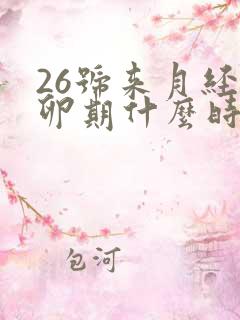 26號来月经
卵期什麼時
包河